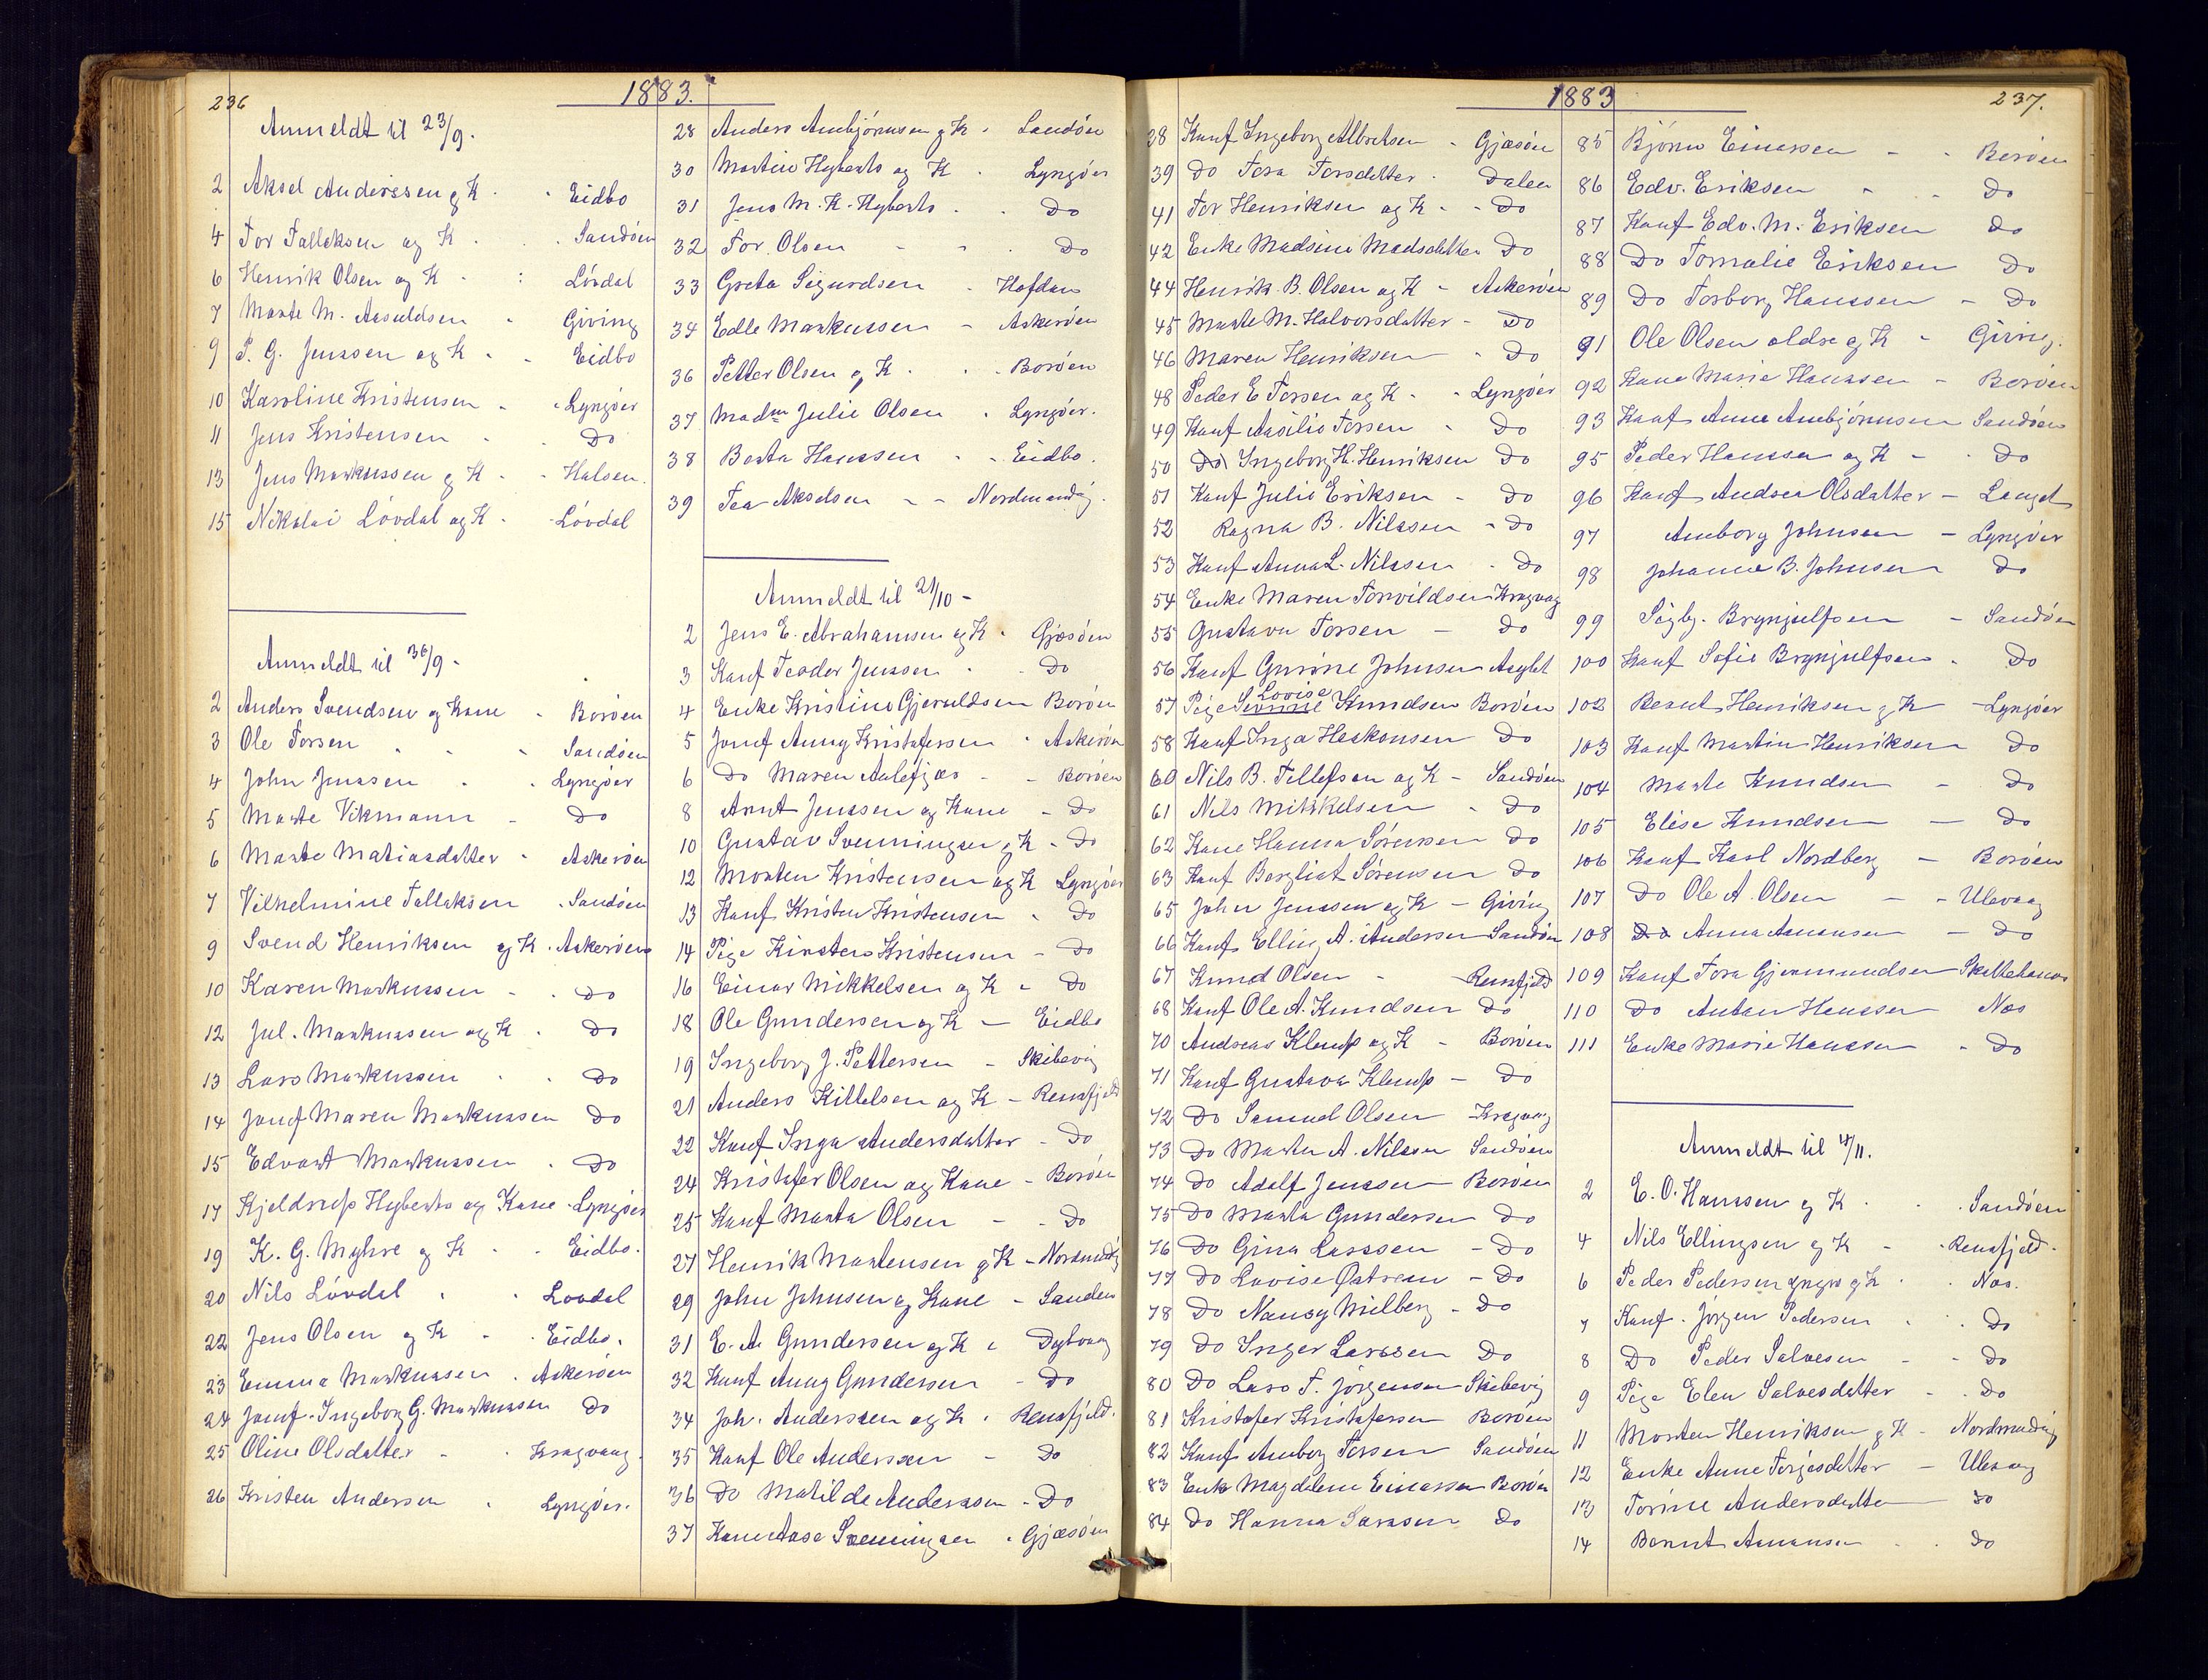 236
1883.
Anmeldt til 23/9.
2 Aksel Anderssen og K. - Eidbo
4 Tor Tallaksen og K - Sandöen
6 Henrik Olsen og K - Lövdal
7 Marte M. Aasuldsen - Giving
9 P. G. Jenssen og K - Eidbo
10 Karoline Kristensen - Lyngöer
11 Jens Kristensen - Do
13 Jens Markussen og K - Halsen.
15 Nikolai Lövdal og K - Lövdal
Anmeldt til 30/9.
2 Anders Svendsen og Kone - Boröen
3 Ole Torsen - Sandöen
4 John Jenssen - Lyngöer
5 Marte Vikmann - Do
6 Marte Matiasdatter - Askeröen
7 Vilhelmine Tallaksen - Sandöen
9 Svend Henriksen og K. Askeröen
10 Karen Markussen - Do
12 Jul. Markussen og K. Do
13 Lars Markussen - Do
14 Jomf Maren Markussen Do
15 Edvart Markussen - Do
17 Kjeldrup Hyberts og Kone - Lyngöer
19 K. G. Myhre og K - Eidbo.
20 Nils Lövdal - Lovdal
22 Jens Olsen og K - Eidbo.
23 Emma Markussen . Askeröen
24 Jomf. Ingeborg G. Markussen Do
25 Oline Olsdatter - Kragvaag
26 Kristen Andersen - Lyngöer.
28 Anders Anbjörnsen og K - Sandöen
30 Martin Hyberts og K - Lyngöer
31 Jens M. K. Hyberts - Do
32 Tor Olsen - Do
33 Greta Sigurdsen - Hafdan
34 Edle Markussen - Askeröen
36 Petter Olsen og K - Boröen
37 Madm Julie Olsen - Lyngöer.
38 Berta Hanssen - Eidbo.
39 Tea Akselsen - Nordmandvig.
Anmeldt til 21/10 -
2 Jens E. Abrahamsen og K - Gjæsöen
3 Konf Teodor Jenssen - Do
4 Enke Kristine Gjeruldsen Boröen
5 Jomf Anny Kristofersen - Askeröen
6 Do Maren Aalefjær - Boröen
8 Arnt Jenssen og Kone - Do
10 Gustav Svenningsen og K - Do
12 Morten Kristensen og K Lyngöer
13 Konf Kristen Kristensen - Do
14 Pige Kirsten Kristensen - Do
16 Einar Mikkelsen og K - Do
18 Ole Gundersen og K - Eidbo
19 Ingeborg J. Pettersen - Skibevig
21 Anders Kittelsen og K - Rensfjeld
22 Konf Inga Andersdatter - Do
24 Kristofer Olsen og Kone - Boröen
25 Konf Marta Olsen - Do
27 Henrik Mortensen og K - Nordmandvig
29 John Johnsen og Kone - Sanden
31 E. A. Gundersen og K - Dybvaag
32 Konf Anny Gundersen - Do
34 Joh. Anderssen og K. Rensfjeld.
35 Konf Ole Anderssen - Do
36 Do Matilde Anderssen - Do
37 Kone Aase Svenningsen - Gjæsöen
1883
237.
38 Konf Ingeborg Albretsen - Gjæsöen
39 Do Tora Torsdatter - Dalen
41 Tor Henriksen og K - Do
42 Enke Madsine Madsdatter Do
44 Henrik B. Olsen og K - Askeröen
45 Marte M. Halvorsdatter - Do
46 Maren Henriksen - Do
48 Peder E Torsen og K - Lyngöer
49 Konf Aasilie Torsen - Do
50 Do Ingeborg H. Henriksen Do
51 Konf Julie Eriksen - Do
52 Ragna B. Nilssen - Do
53 Konf Anna L. Nilssen - Do
54 Enke Maren Torvildsen Kragvaag
55 Gustava Torsen - Do
56 Konf Gurine Johnsen Asylet
57 Pige Lovise Knudsen Boröen
58 Konf Inga Heskonsen Do
60 Nils B. Tellefsen og K - Sandöen
61 Nils Mikkelsen - Do
62 Kone Hanna Sörensen Do
63 Konf Bergliot Sörensen Do
65 John Jenssen og K - Giving
66 Konf Elling A. Andersen Sandöen
67 Knud Olsen - Rensfjeld
68 Konf Ole A. Knudsen Do
70 Andreas Klemp og K - Boröen
71 Konf Gustava Klemp - Do
72 Do Samuel Olsen Kragvaag
73 Do Marten A. Nilssen Sandöen
74 Do Adolf Jenssen Boröen
75 Do Marta Gundersen Do
76 Do Gina Larssen - Do
77 Do Lovise Östrem - Do
78 Do Nancy Milberg - Do
79 Do Inger Larssen Do
80 Do Lars T. Jörgensen Skibevig
81 Kristofer Kristofersen Boröen
82 Konf Anborg Torsen Sandöen
83 Enke Magdalene Einarssen Boröen
84 Do Hanna Larssen Do
85 Björn Einerssen - Boröen
86 Edv. Eriksen - Do
87 Konf Edv. M. Eriksen Do
88 Do Tomalie Eriksen Do
89 Do Torborg Hanssen - Do
91 Ole Olsen eldre og K - Giving.
92 Kone Marie Hanssen - Boröen
93 Konf Anne Anbjörnsen Sandöen
95 Peder Hanssen og K - Do
96 Konf Andrea Olsdatter - Langet
97 Anborg Johnsen - Lyngöer
98 Johanne B. Johnsen Do
99 Sigbj. Brynjulfsen - Sandöen
100 Konf Sofie Brynjulfsen - Do
102 Berent Henriksen og K - Lyngöer
103 Konf Martin Henriksen Do
104 Marte Knudsen - Do
105 Elise Knudsen - Do
106 Konf Karl Nordberg - Boröen
107 Do Ole A. Olsen - Ulevaag
108 Do Anna Aanonsen - Do
109 Konf Tora Gjermundsen
110 Do Anton Hanssen Næs
111 Enke Marie Hanssen - Do
Anmeldt til 4/11.
2 E. O. Hanssen og K - Sandöen
4 Nils Ellingsen og K - Rensfjeld.
6 Peder Pederssen yngre og K - Næs.
7 Konf. Jörgen Pedersen - Do
8 Do Peder Salvesen - Do
9 Pige Elen Salvesdatter - Do
11 Morten Henriksen og K - Nordmandvig
12 Enke Anne Terjesdatter - Ulevaag
13 Torine Andersdatter Do
14 Berent Aanonsen - Do